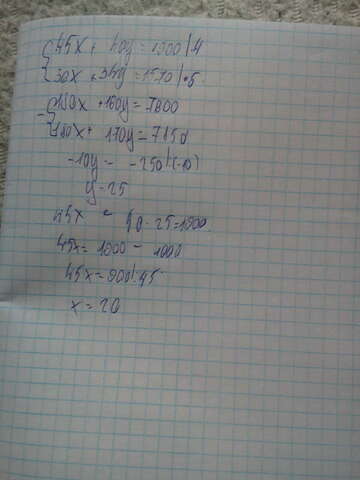 45x + 40y = 1900 | 4
30x + 34y = 1570 | · 5
180x + 160y = 7600
180x + 170y = 7850
-10y = -250 | (-10)
y = 25
45x + 40 · 25 = 1900
45x = 1900 - 1000
45x = 900 | :45
x = 20